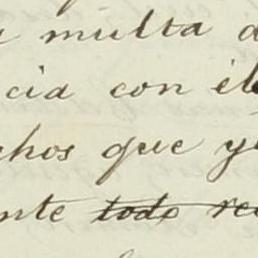 a multa d
cia con él
chos que y
ente ~~todo~~ re